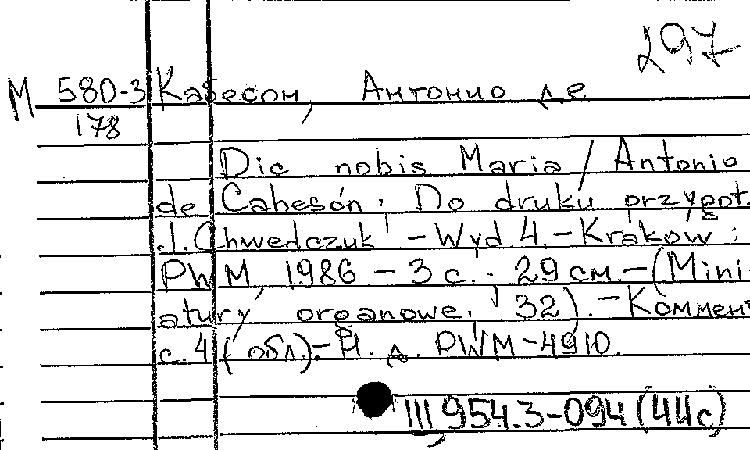 297
М 580-3 Кабесон, Антонио де
178
Dic nobis Maria / Antonio
de Cabesón. Do druku przygot.
J. Chwedczuk. - Wyd 4. - Krakow :
PWM, 1986 - 3 с. ; 29 см - (Mini-
atury organowe. ; 32). - Коммент
с. 4 (обл.). - Н. д. PWM-4910.
III 954.3-094 (44с)